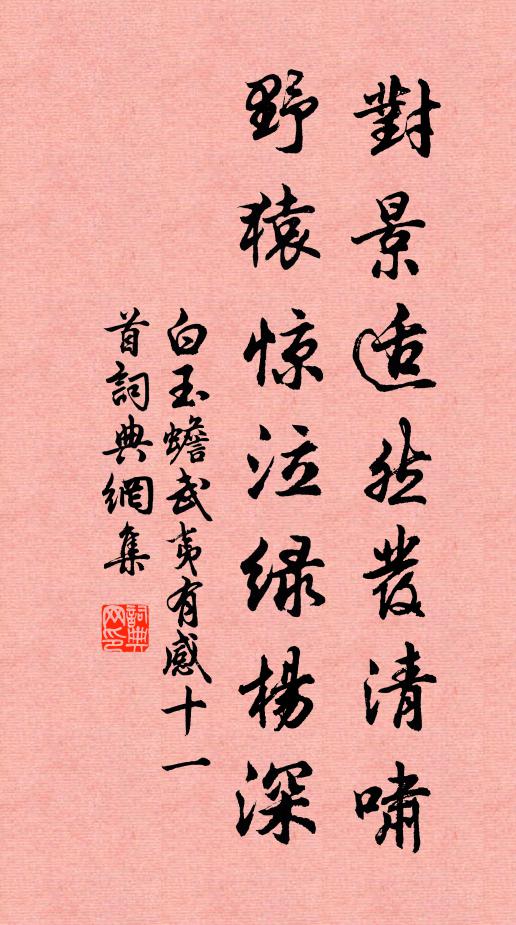 對景适然發清嘯
野猿惊泣绿楊深
白玉蟾武夷有感十一
首詞典網集
詞典网印